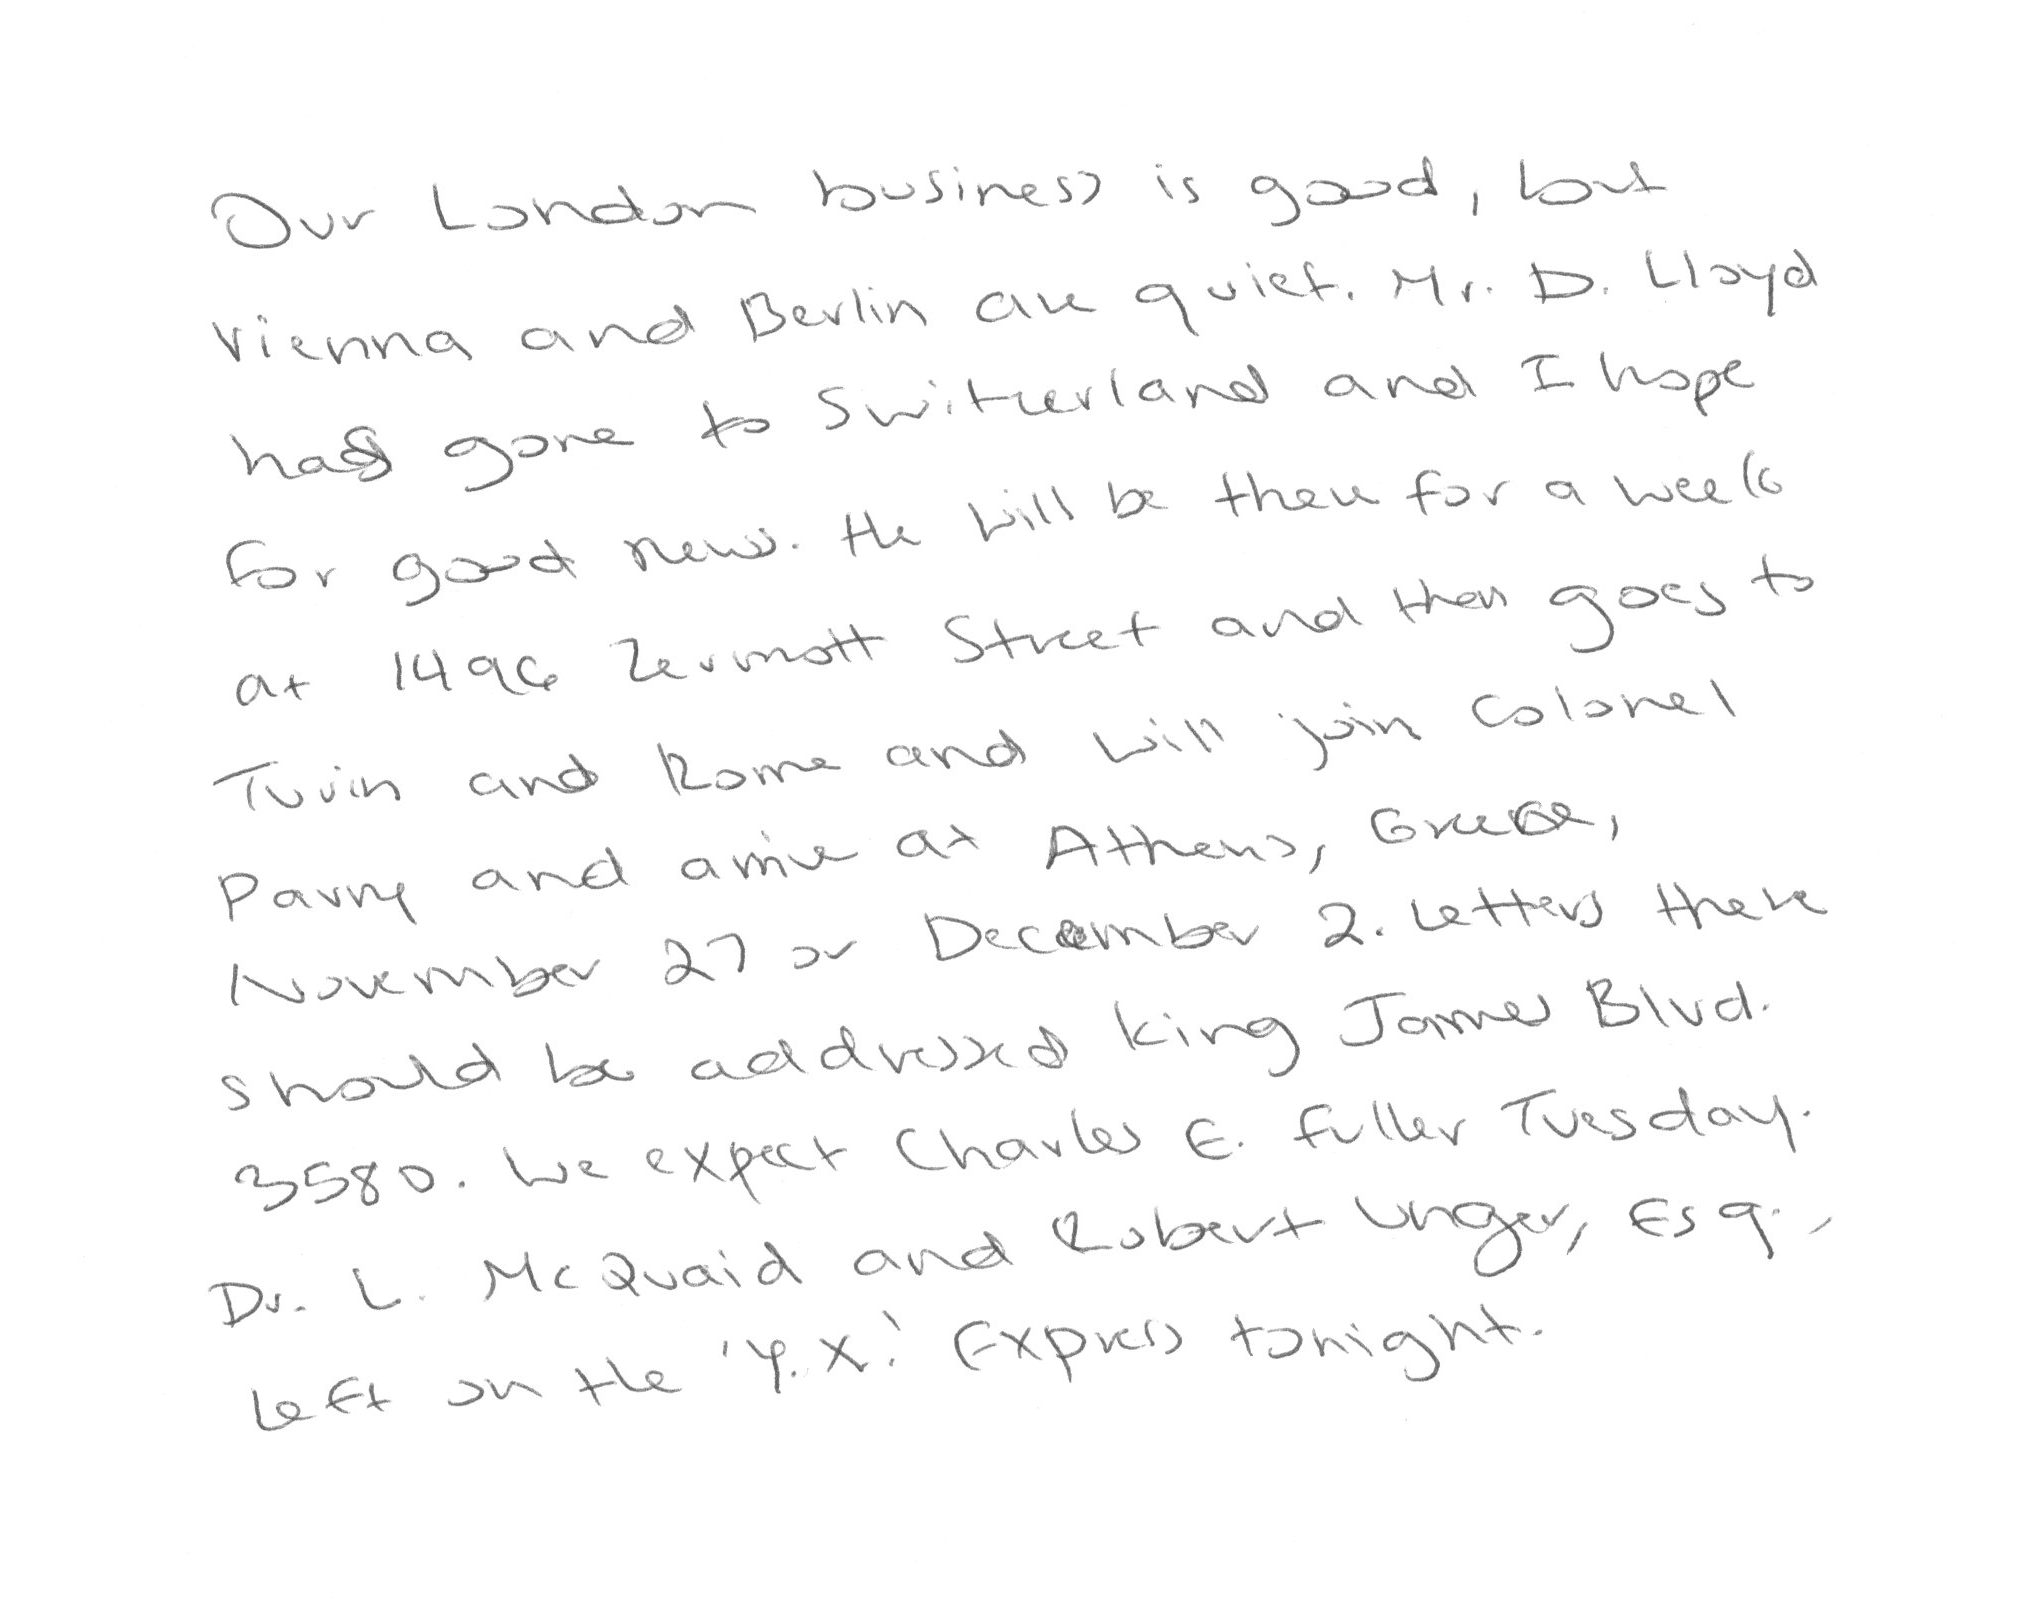 Our London business is good, but
Vienna and Berlin are quiet. Mr. D. Lloyd
has gone to Switzerland and I hope
for good news. He will be there for a week
at 1496 Zermott Street and then goes to
Turin and Rome and will join Colonel
Parry and arrive at Athens, Greece,
November 27 or December 2. Letters there
should be addressed King James Blvd.
3580. We expect Charles E. Fuller Tuesday.
Dr. L. McQuaid and Robert Unger, Esq.,
left on the 'Y.X.' Express tonight.